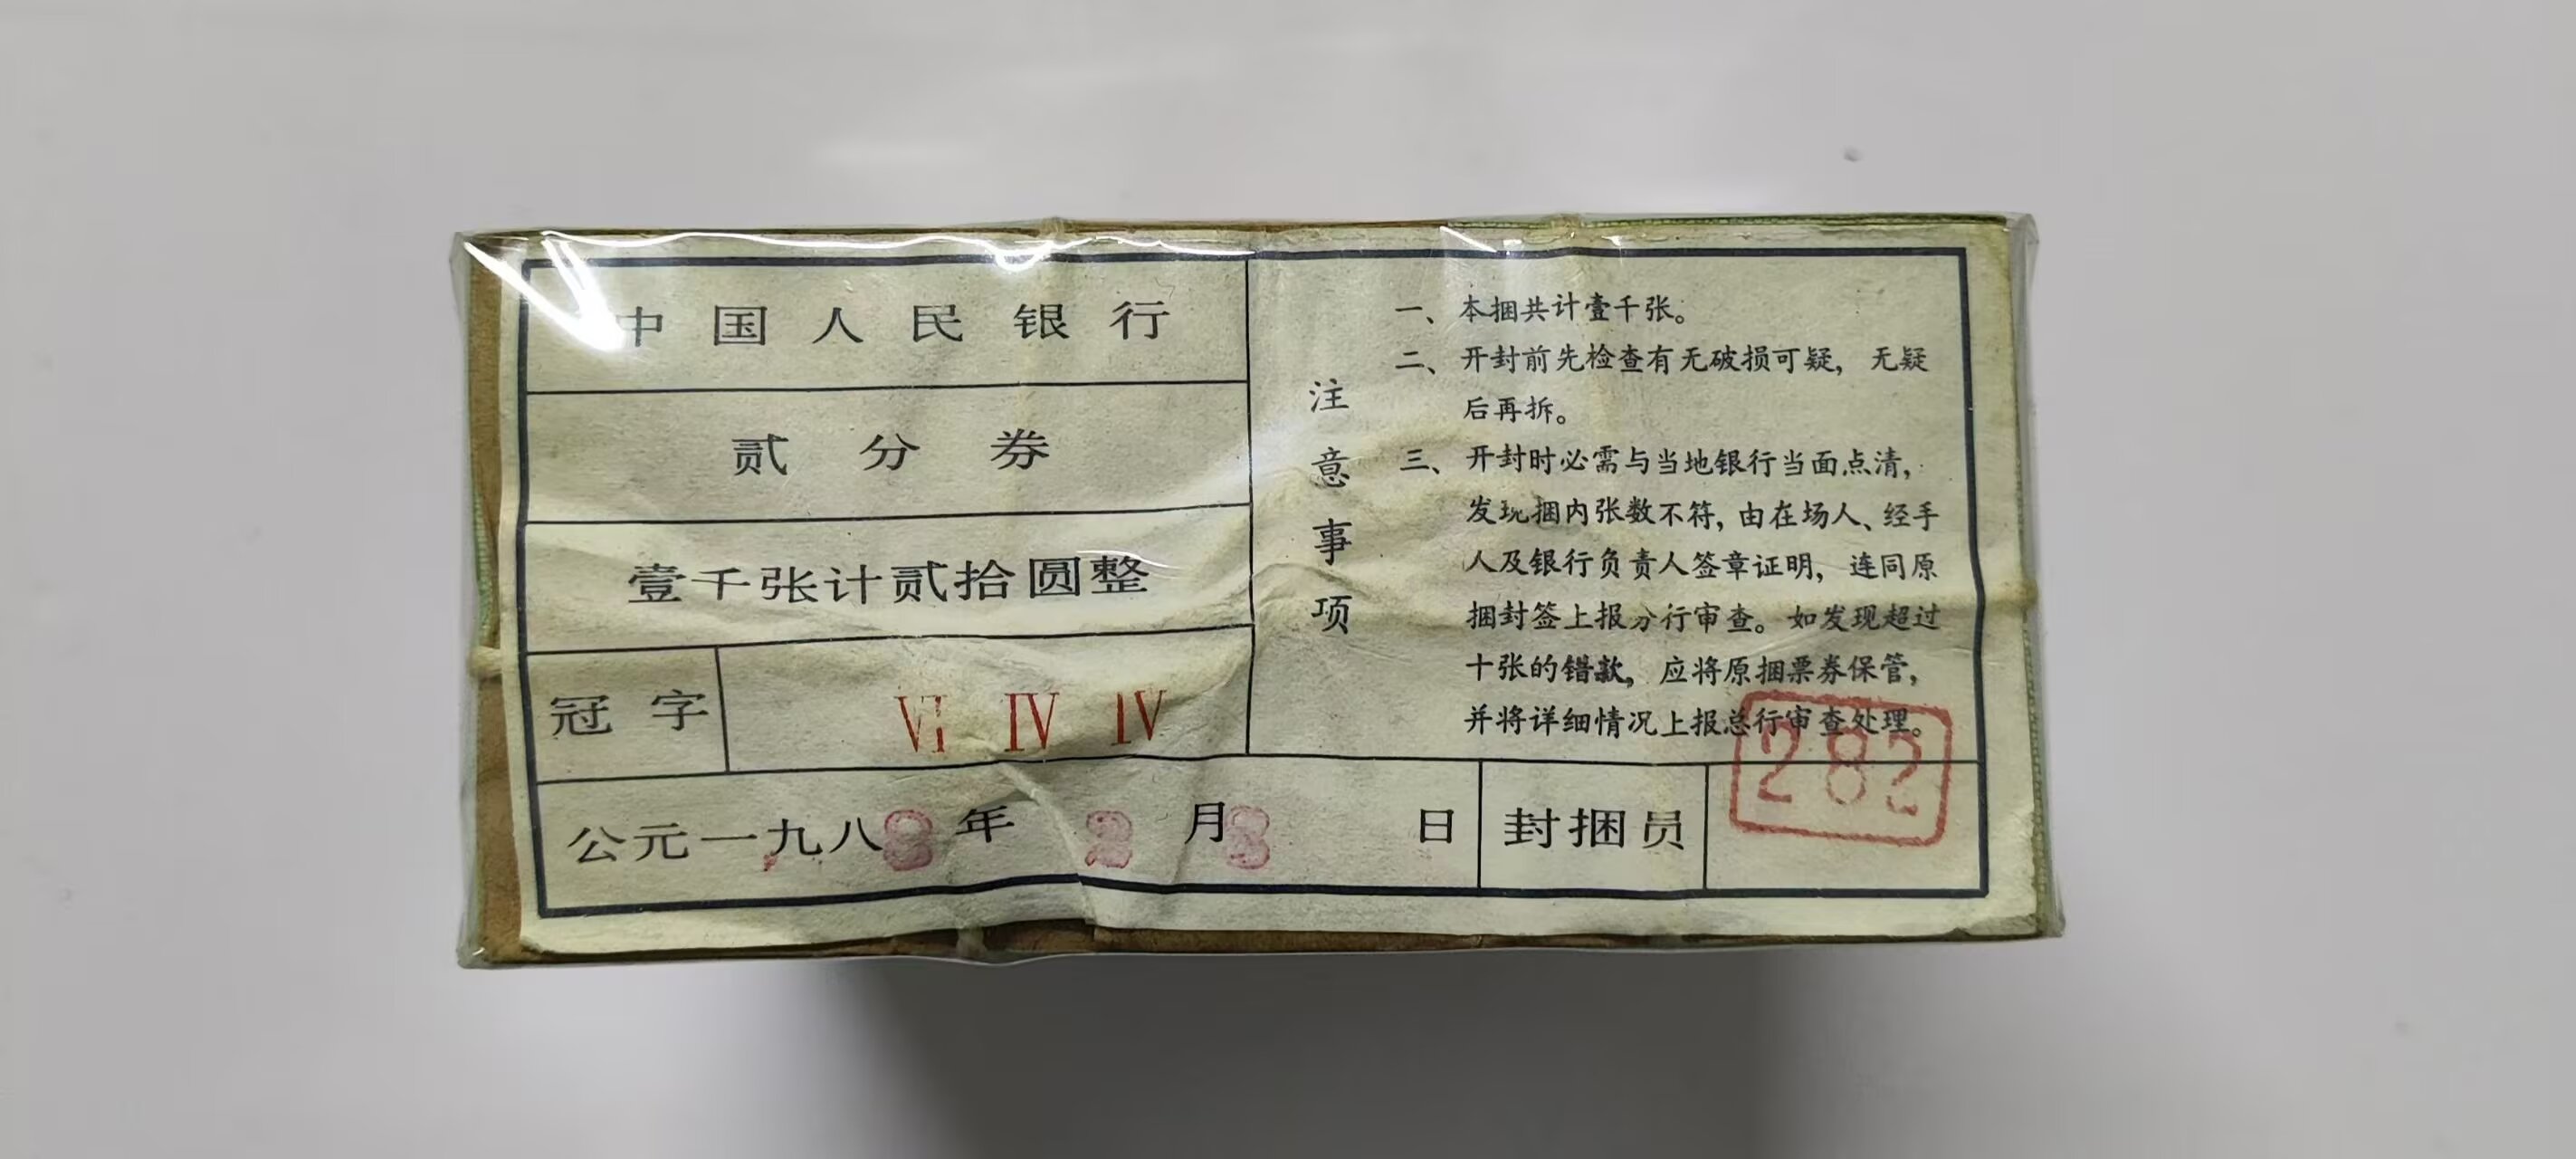 中国人民银行
贰分券
壹千张计贰拾圆整
冠字 VI IV IV
注意事项
一、本捆共计壹千张。
二、开封前先检查有无破损可疑，无疑
后再拆。
三、开封时必需与当地银行当面点清，
发现捆内张数不符，由在场人、经手
人及银行负责人签章证明，连同原
捆封签上报分行审查。如发现超过
十张的错款，应将原捆票券保管，
并将详细情况上报总行审查处理。
公元一九八8年2月3日 封捆员 282